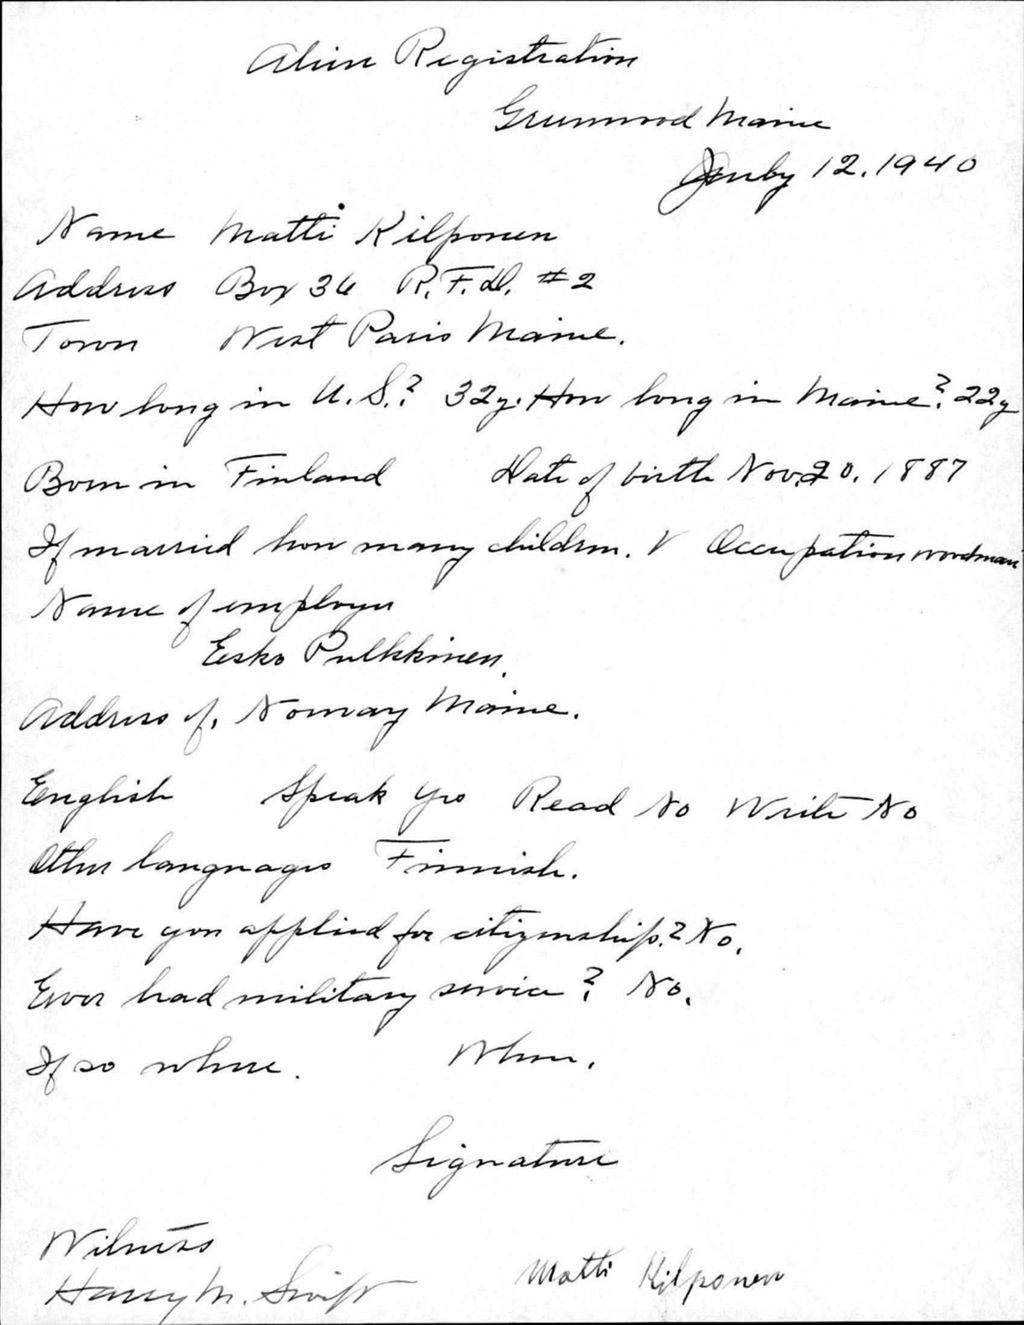 Alien Registration
Greenwood Maine
July 12. 1940
Name Matti Kilponen
Address Box 36 R.F.D. #2
Town West Paris Maine.
How long in U.S.? 32y. How long in Maine? 22y
Born in Finland Date of birth Nov. 20. 1887
If married how many children. V Occupation woodman
Name of employer
Eesko Pulkkinen.
Address of. Norway Maine.
English Speak yes Read No Write No
Other languages Finnish.
Have you applied for citizenship.? No.
Ever had military service? No.
If so where. When.
Signature
Witness
Harry M. Swift Matti Kilponen